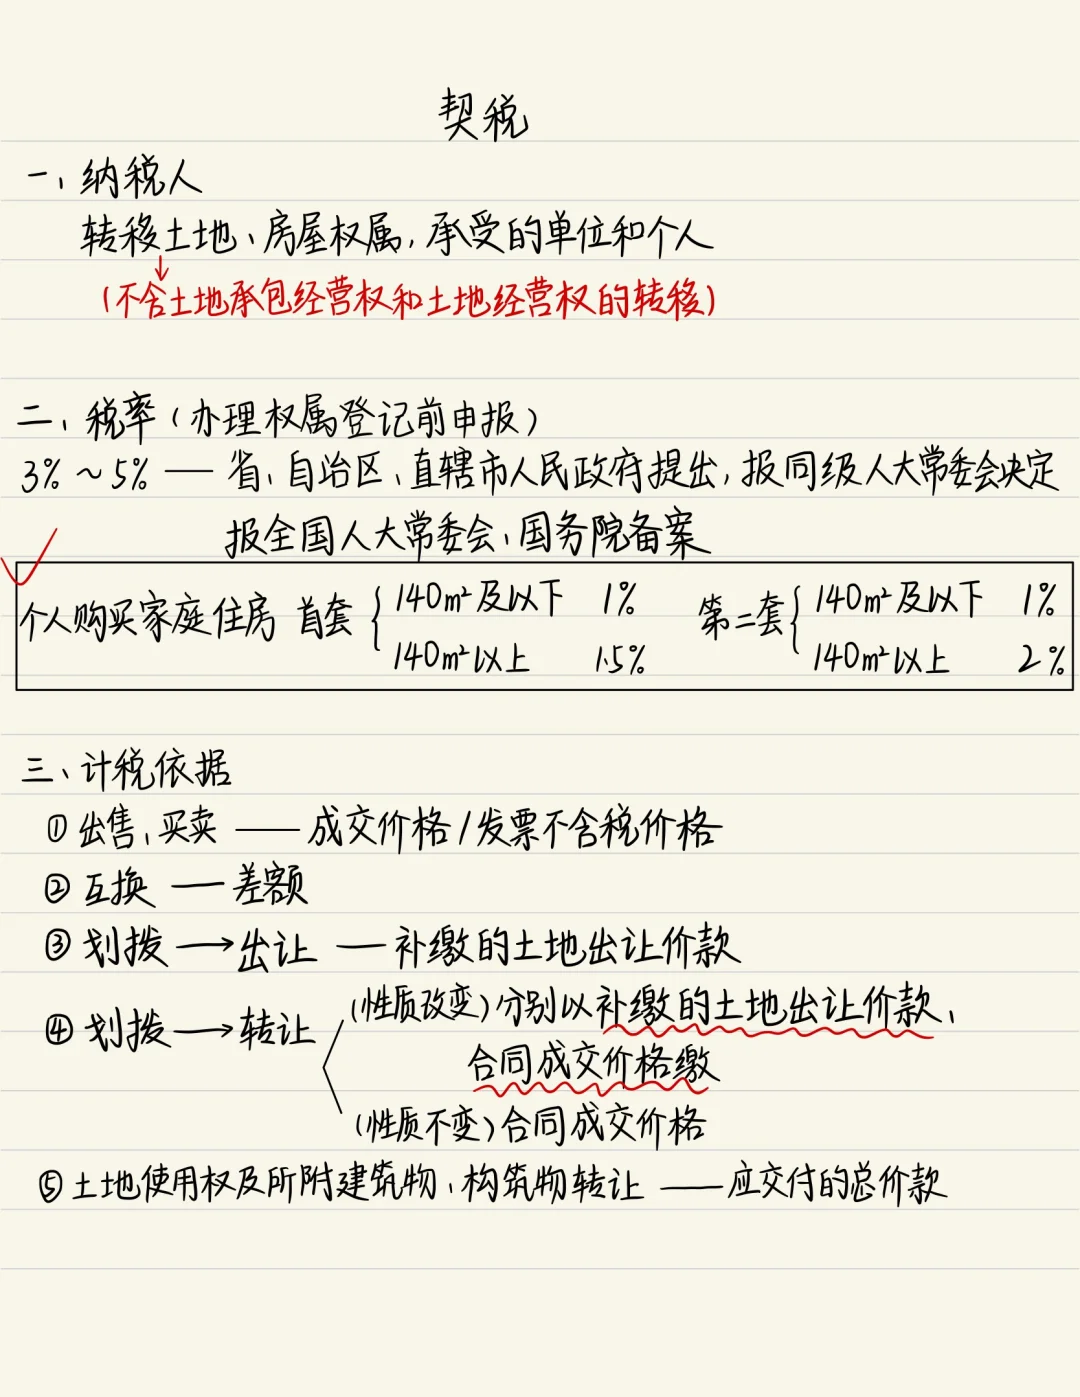 契税
一、纳税人
转移土地、房屋权属,承受的单位和个人
(不含土地承包经营权和土地经营权的转移)
二、税率(办理权属登记前申报)
3%~5% — 省、自治区、直辖市人民政府提出,报同级人大常委会决定
报全国人大常委会、国务院备案
个人购买家庭住房 首套 { 140m²及以下 1% 第二套 { 140m²及以下 1%
140m²以上 1.5% 140m²以上 2%
三、计税依据
① 出售、买卖 —— 成交价格/发票不含税价格
② 互换 — 差额
③ 划拨 → 出让 — 补缴的土地出让价款
④ 划拨 → 转让 (性质改变)分别以补缴的土地出让价款、
合同成交价格缴
(性质不变)合同成交价格
⑤ 土地使用权及所附建筑物、构筑物转让 —— 应交付的总价款